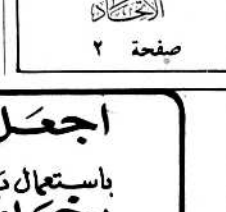 الاتحاد
صفحة ٢
اجعل
باستعمال